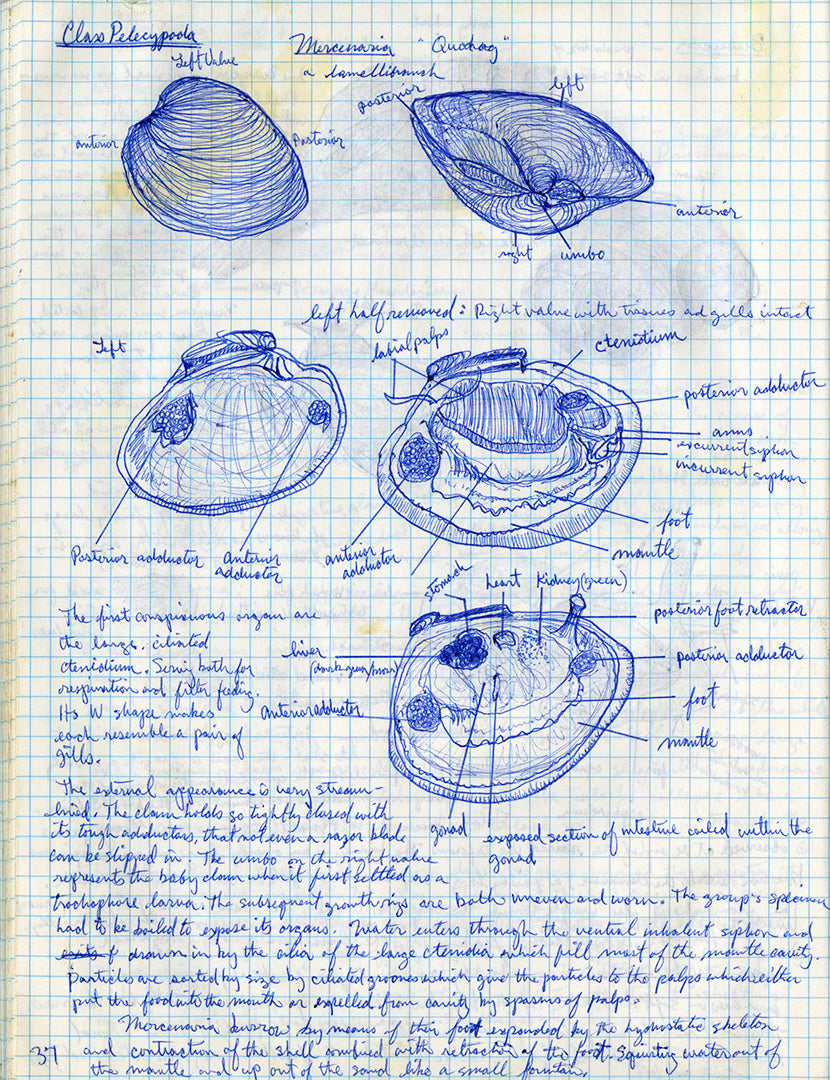 Class Pelecypoda
Mercenaria "Quahag"
a lamellibranch
Left Valve
anterior
Posterior
posterior
left
anterior
right
umbo
left half removed: Right valve with tissues ad gills intact
Left
labial palps
ctenidium
posterior adductor
anus
excurrent siphon
incurrent siphon
foot
mantle
Posterior adductor
Anterior adductor
anterior adductor
stomach
heart
Kidney (green)
posterior foot retractor
liver
posterior adductor
anterior adductor
foot
mantle
gonad
exposed section of intestine coiled within the
gonad
The first conspicuous organ are
the large, ciliated
ctenidium. Serving both for
respiration and filter feeding.
Its W shape makes
each resemble a pair of
gills.
The external appearance is very stream-
lined. The clam holds so tightly closed with
its tough adductors, that not even a razor blade
can be slipped in. The umbo on the right valve
represents the baby clam when it first settled as a
trochophore larva. The subsequent growth rings are both uneven and worn. The group's specimen
had to be boiled to expose its organs. Water enters through the ventral inhalent siphon and
drawn in by the cilia of the large ctenidia which fill most of the mantle cavity.
Particles are sorted by size by ciliated grooves which give the particles to the palps which either
put the food into the mouth or expelled from cavity by spasms of palps.
Mercenaria burrow by means of their foot expanded by the hydrostatic skeleton
and contraction of the shell combined with retraction of the foot. Squirting water out of
the mantle and up out of the sand like a small fountain.
37